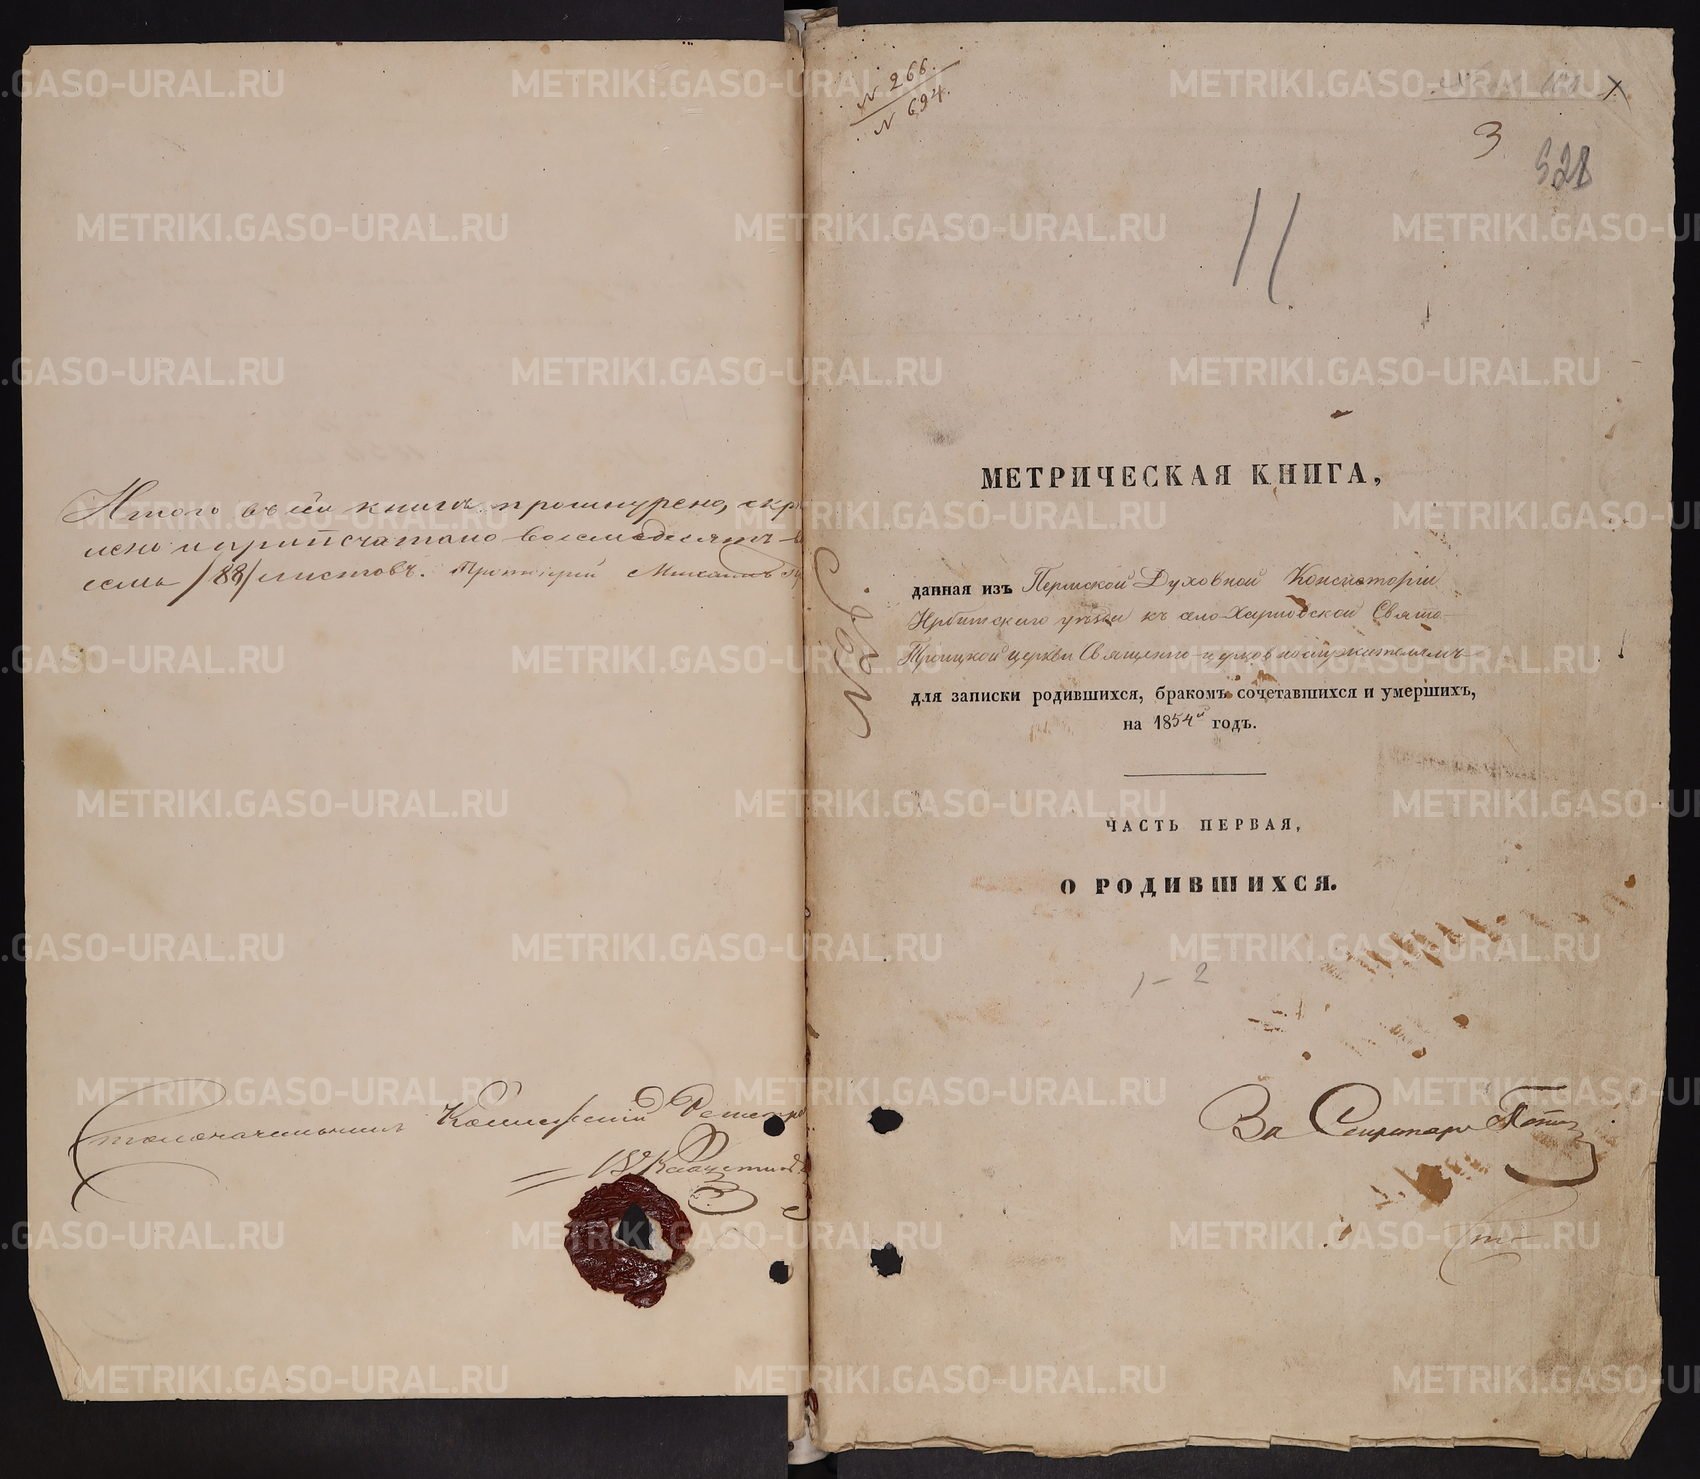 Итого въ сей книгѣ прошнурено, скрѣ
плено и припечатано восемьдесятъ-в
семь /88/ листовъ. Протоіерей Михаилъ
Столоначальникъ Коллежскій Регистр
N 266.
N 694.
3
328
11
№28.
МЕТРИЧЕСКАЯ КНИГА,
данная изъ Пермской Духовной Консисторіи
Ирбитскаго уѣзда къ село-Харловской Свято-
Троицкой церкви Священно-церковнослужителямъ
для записки родившихся, бракомъ сочетавшихся и умершихъ,
на 1854й годъ.
ЧАСТЬ ПЕРВАЯ,
О РОДИВШИХСЯ.
1-2
За Секретаря
METRIKI.GASO-URAL.RU